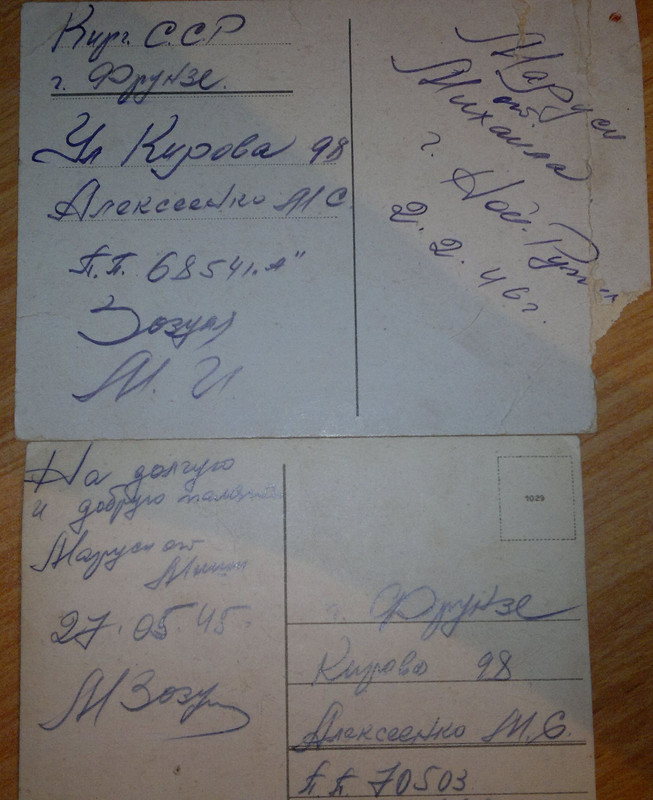 Кирг. С.С.Р
г. Фрунзе.
Ул Кирова 98
Алексеенко М С
П.П. 68541 „А"
Зозуля
М. И
Маруси
от
Михаила
г.
2. 2. 46 г.
На долгую
и добрую память
Маруси от
Миши
27. 05. 45
М Зозуля
1029
г. Фрунзе
Кирова 98
Алексеенко М.С.
П.П. 70503